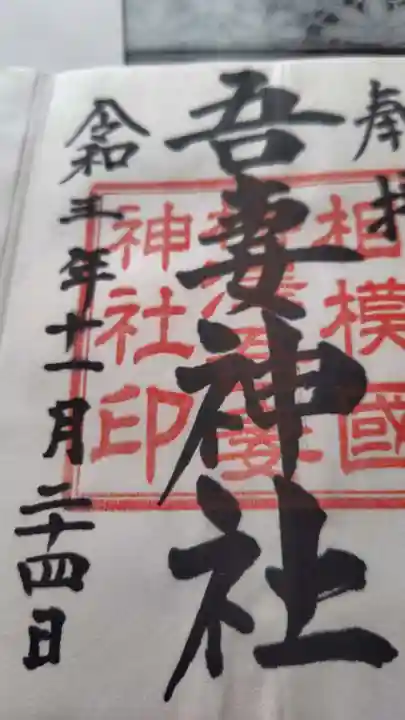 奉拝
相模國
吾妻神社
神社印
令和三年十一月二十四日